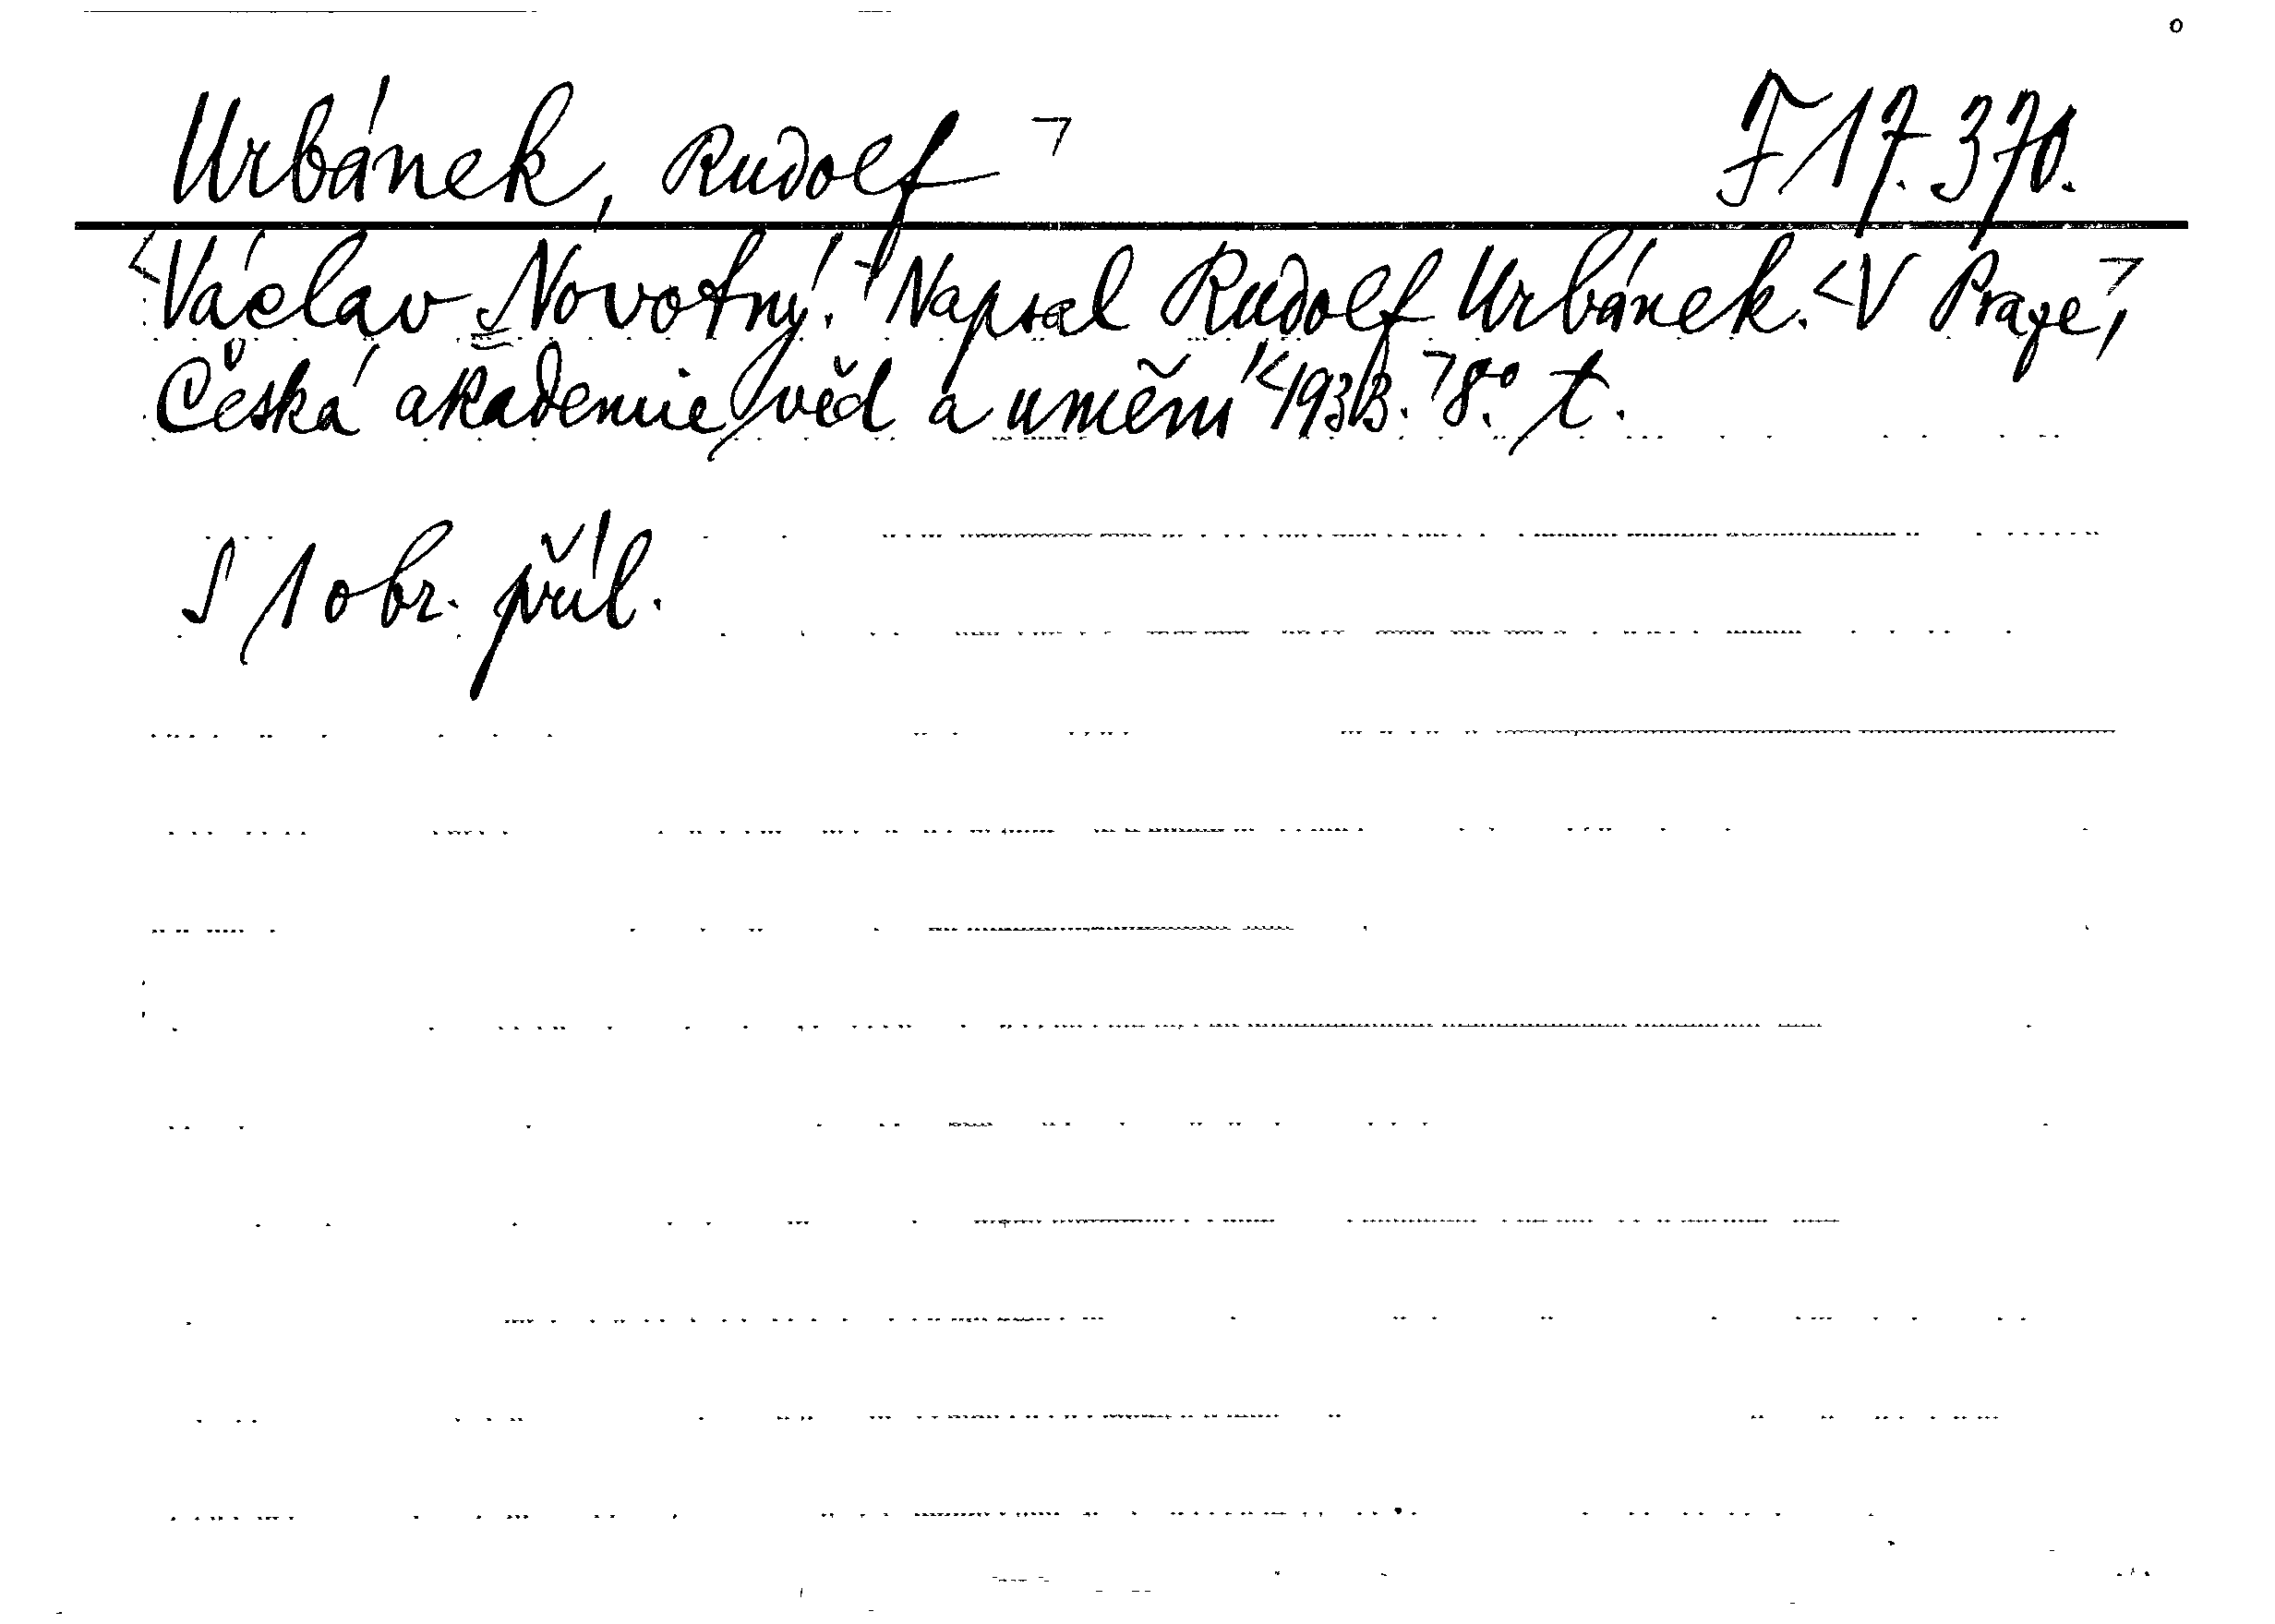 Urbánek, Rudolf F 17.370.
Václav Novotný. Napsal Rudolf Urbánek. V Praze,
Česká akademie věd a umění 1933. 8° t.
S 1 obr. příl.